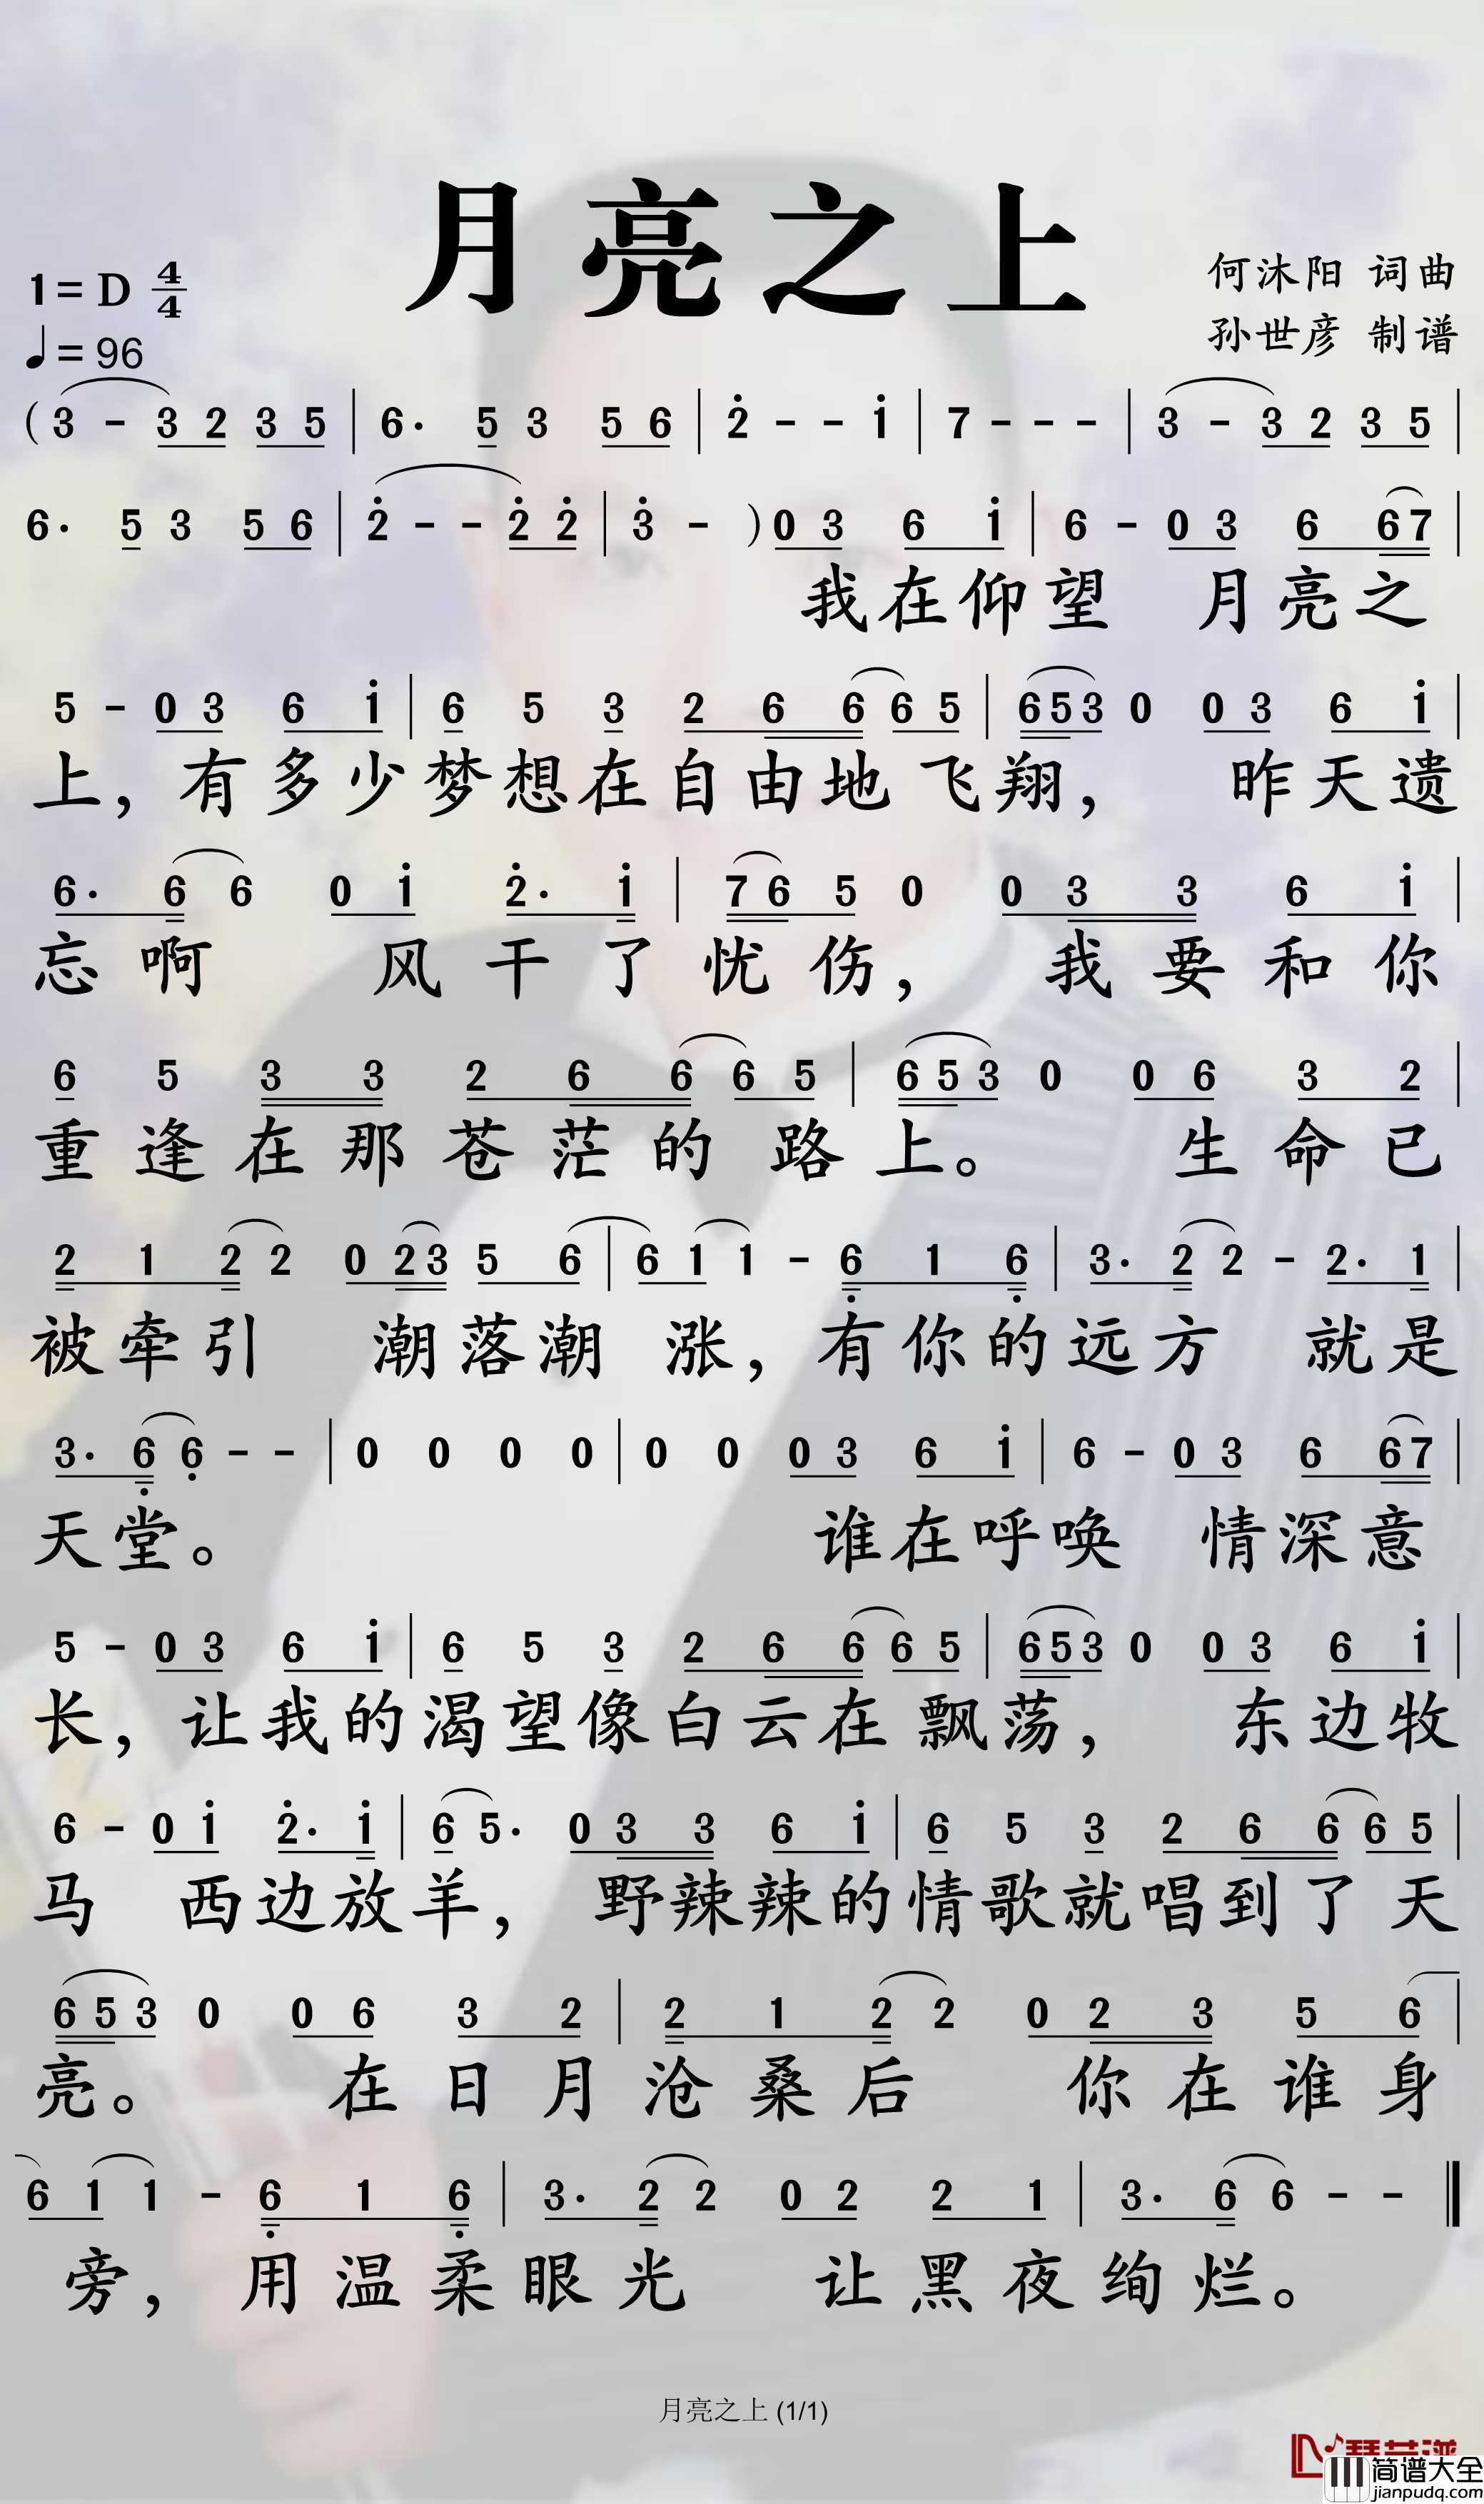 月亮之上
1=D 4/4
♩=96
何沐阳 词曲
孙世彦 制谱
(3 - 3 2 3 5 | 6· 5 3 5 6 | 2̇ - - 1̇ | 7 - - - | 3 - 3 2 3 5 |
6· 5 3 5 6 | 2̇ - - 2̇ 2̇ | 3̇ - ) 0 3 6 1̇ | 6 - 0 3 6 6 7 |
我在仰望 月亮之
5 - 0 3 6 1̇ | 6 5 3 2 6 6 6 5 | 6 5 3 0 0 3 6 1̇ |
上，有多少梦想在自由地飞翔， 昨天遗
6· 6 6 0 1̇ 2̇· 1̇ | 7 6 5 0 0 3 3 6 1̇ |
忘啊 风干了忧伤， 我要和你
6 5 3 3 2 6 6 6 5 | 6 5 3 0 0 6 3 2 |
重逢在那苍茫的路上。 生命已
2 1 2 2 0 2 3 5 6 | 6 1 1 - 6̣ 1 6̣ | 3· 2 2 - 2· 1 |
被牵引 潮落潮涨，有你的远方 就是
3· 6̣ 6̣ - - | 0 0 0 0 | 0 0 0 3 6 1̇ | 6 - 0 3 6 6 7 |
天堂。 谁在呼唤 情深意
5 - 0 3 6 1̇ | 6 5 3 2 6 6 6 5 | 6 5 3 0 0 3 6 1̇ |
长，让我的渴望像白云在飘荡， 东边牧
6 - 0 1̇ 2̇· 1̇ | 6 5· 0 3 3 6 1̇ | 6 5 3 2 6 6 6 5 |
马 西边放羊， 野辣辣的情歌就唱到了天
6 5 3 0 0 6 3 2 | 2 1 2 2 0 2 3 5 6 |
亮。 在日月沧桑后 你在谁身
6 1 1 - 6̣ 1 6̣ | 3· 2 2 0 2 2 1 | 3· 6 6 - - ‖
旁，用温柔眼光 让黑夜绚烂。
月亮之上 (1/1)
简谱大全
jianpudq.com